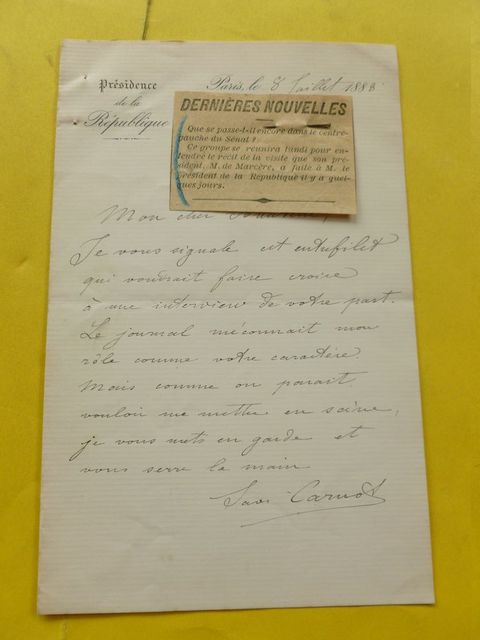 Présidence
de la
République
Paris, le 8 Juillet 1888
DERNIÈRES NOUVELLES
Que se passe-t-il encore dans le centre-
gauche du Sénat ?
Ce groupe se réunira lundi pour en-
tendre le récit de la visite que son pré-
sident, M. de Marcère, a faite à M. le
président de la République il y a quel-
ques jours.
Mon cher
Je vous signale cet entrefilet
qui voudrait faire croire
à une interview de votre part.
Le journal méconnait mon
rôle comme votre caractère.
Mais comme on parait
vouloir me mettre en scène,
je vous mets en garde et
vous serre la main
Sadi Carnot